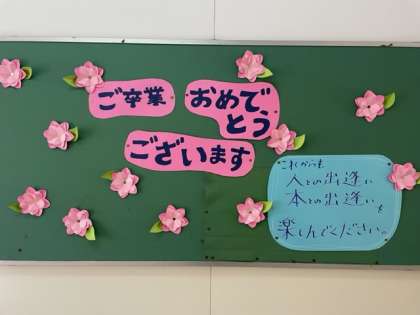 ご卒業
おめで
とう
ございます
これからも
人との出逢い
本との出逢いを
楽しんでください。